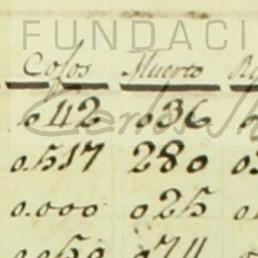 FUNDACI
Cosos Muerto
042 036
0.517 280
0.000 025